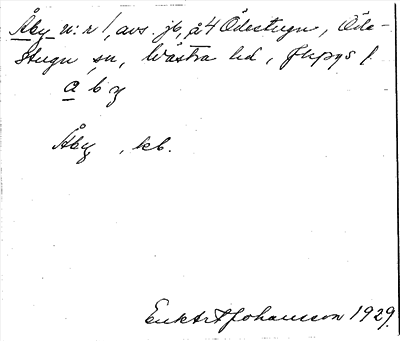 Åby n:r 1, avs. jb, å 4 Ödestugu, Öde-
stugu sn, Västra hd, Jkpgs l.
a b y
Åby , kb.
Enkärt Johansson 1929.